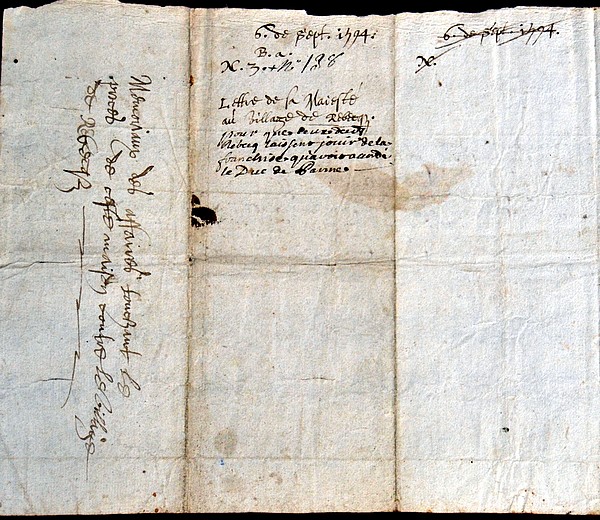 6. de Sept. 1594.
B. a.
N. 3. + No 138
Lettre de sa Maiesté
au Village de Rebecq
pour que ceux de
Rebecq laissent jouir de la
franchise qu'avoit accordé
le Duc de Parme
6. de Sept. 1594.
N.
Memoriaux des affaires touchant le
procés de ceste maison contre le village
de Rebecq